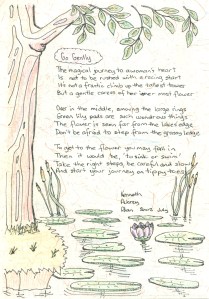 Go Gently
The magical journey to awoman's heart
Is not to be rushed with a racing start
It's not a frantic climb up the tallest tower
But a gentle caress of her inner most flower
Over in the middle, among the large rings
Green lily pads are such wondrous things
The flower is seen far from the lakes edge
Don't be afraid to step from the grassy ledge
To get to the flower you may fall in
Then it would be, to sink or swim
Take the right steps, be careful and slowly
And start your journey on tippy toes
Kenneth